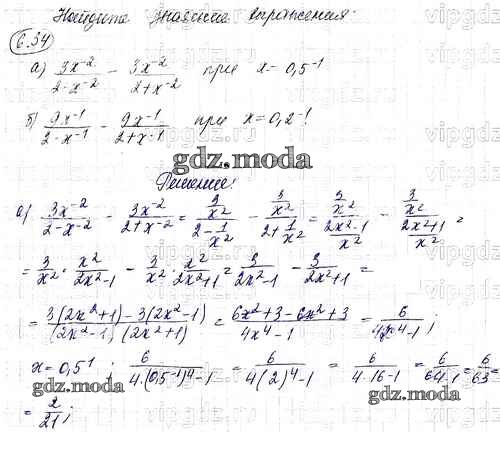 Найдите значение выражения:
6.34
а) 3x⁻²/(2-x⁻²) - 3x⁻²/(2+x⁻²) при x=0,5⁻¹
б) 9x⁻¹/(2-x⁻¹) - 9x⁻¹/(2+x⁻¹) при x=0,2⁻¹
gdz.moda
Решение:
а) 3x⁻²/(2-x⁻²) - 3x⁻²/(2+x⁻²) = (3/x²)/(2-1/x²) - (3/x²)/(2+1/x²) = (3/x²)/((2x²-1)/x²) - (3/x²)/((2x²+1)/x²) =
= 3/x² · x²/(2x²-1) - 3/x² · x²/(2x²+1) = 3/(2x²-1) - 3/(2x²+1) =
= (3(2x²+1)-3(2x²-1))/((2x²-1)(2x²+1)) = (6x²+3-6x²+3)/(4x⁴-1) = 6/(4x⁴-1);
x=0,5⁻¹; 6/(4·(0,5⁻¹)⁴-1) = 6/(4(2)⁴-1) = 6/(4·16-1) = 6/(64-1) = 6/63 =
gdz.moda gdz.moda
= 2/21;
vipgdz.ru